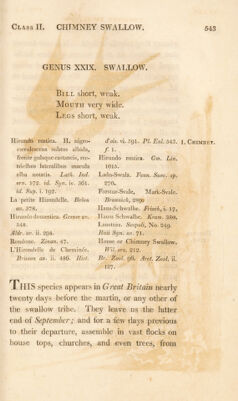 CLASS II. CHIMNEY SWALLOW. 543
GENUS XXIX. SWALLOW.
BILL short, weak.
MOUTH very wide.
LEGS short, weak.
Hirundo rustica. H. nigro-
cœrulescens subtus albida,
fronte gulaque castaneis, rec-
tricibus lateralibus macula
alba notatis. Lath. Ind.
orn. 572. id. Syn. iv. 561.
id. Sup. i. 192.
La petite Hirondelle. Belon
av. 378.
Hirundo domestica. Gesner av.
548.
Aldr. av. ii. 294.
Rondone. Zinan. 47.
L'Hirondelle de Cheminée.
Brisson av. ii. 486. Hist.
d'ois. vi. 591. Pl. Enl. 543.
f. 1.
Hirundo rustica. Gm. Lin.
1015.
Ladu-Swala. Faun. Suec. sp.
270.
Forstue-Svale, Mark-Svale.
Brunnich, 289
Haus-Schwalbe. Frisch, i. 17.
Hauss Schwalbe. Kram. 380.
Lastauza. Scopoli, No. 249.
Raii Syn. av. 71.
House or Chimney Swallow.
Wil. orn. 212.
Br. Zool. 96. Arct. Zool. ii.
127.
1. CHIMNEY.
THIS species appears in Great Britain nearly
twenty days before the martin, or any other of
the swallow tribe. They leave us the latter
end of September; and for a few days previous
to their departure, assemble in vast flocks on
house tops, churches, and even trees, from